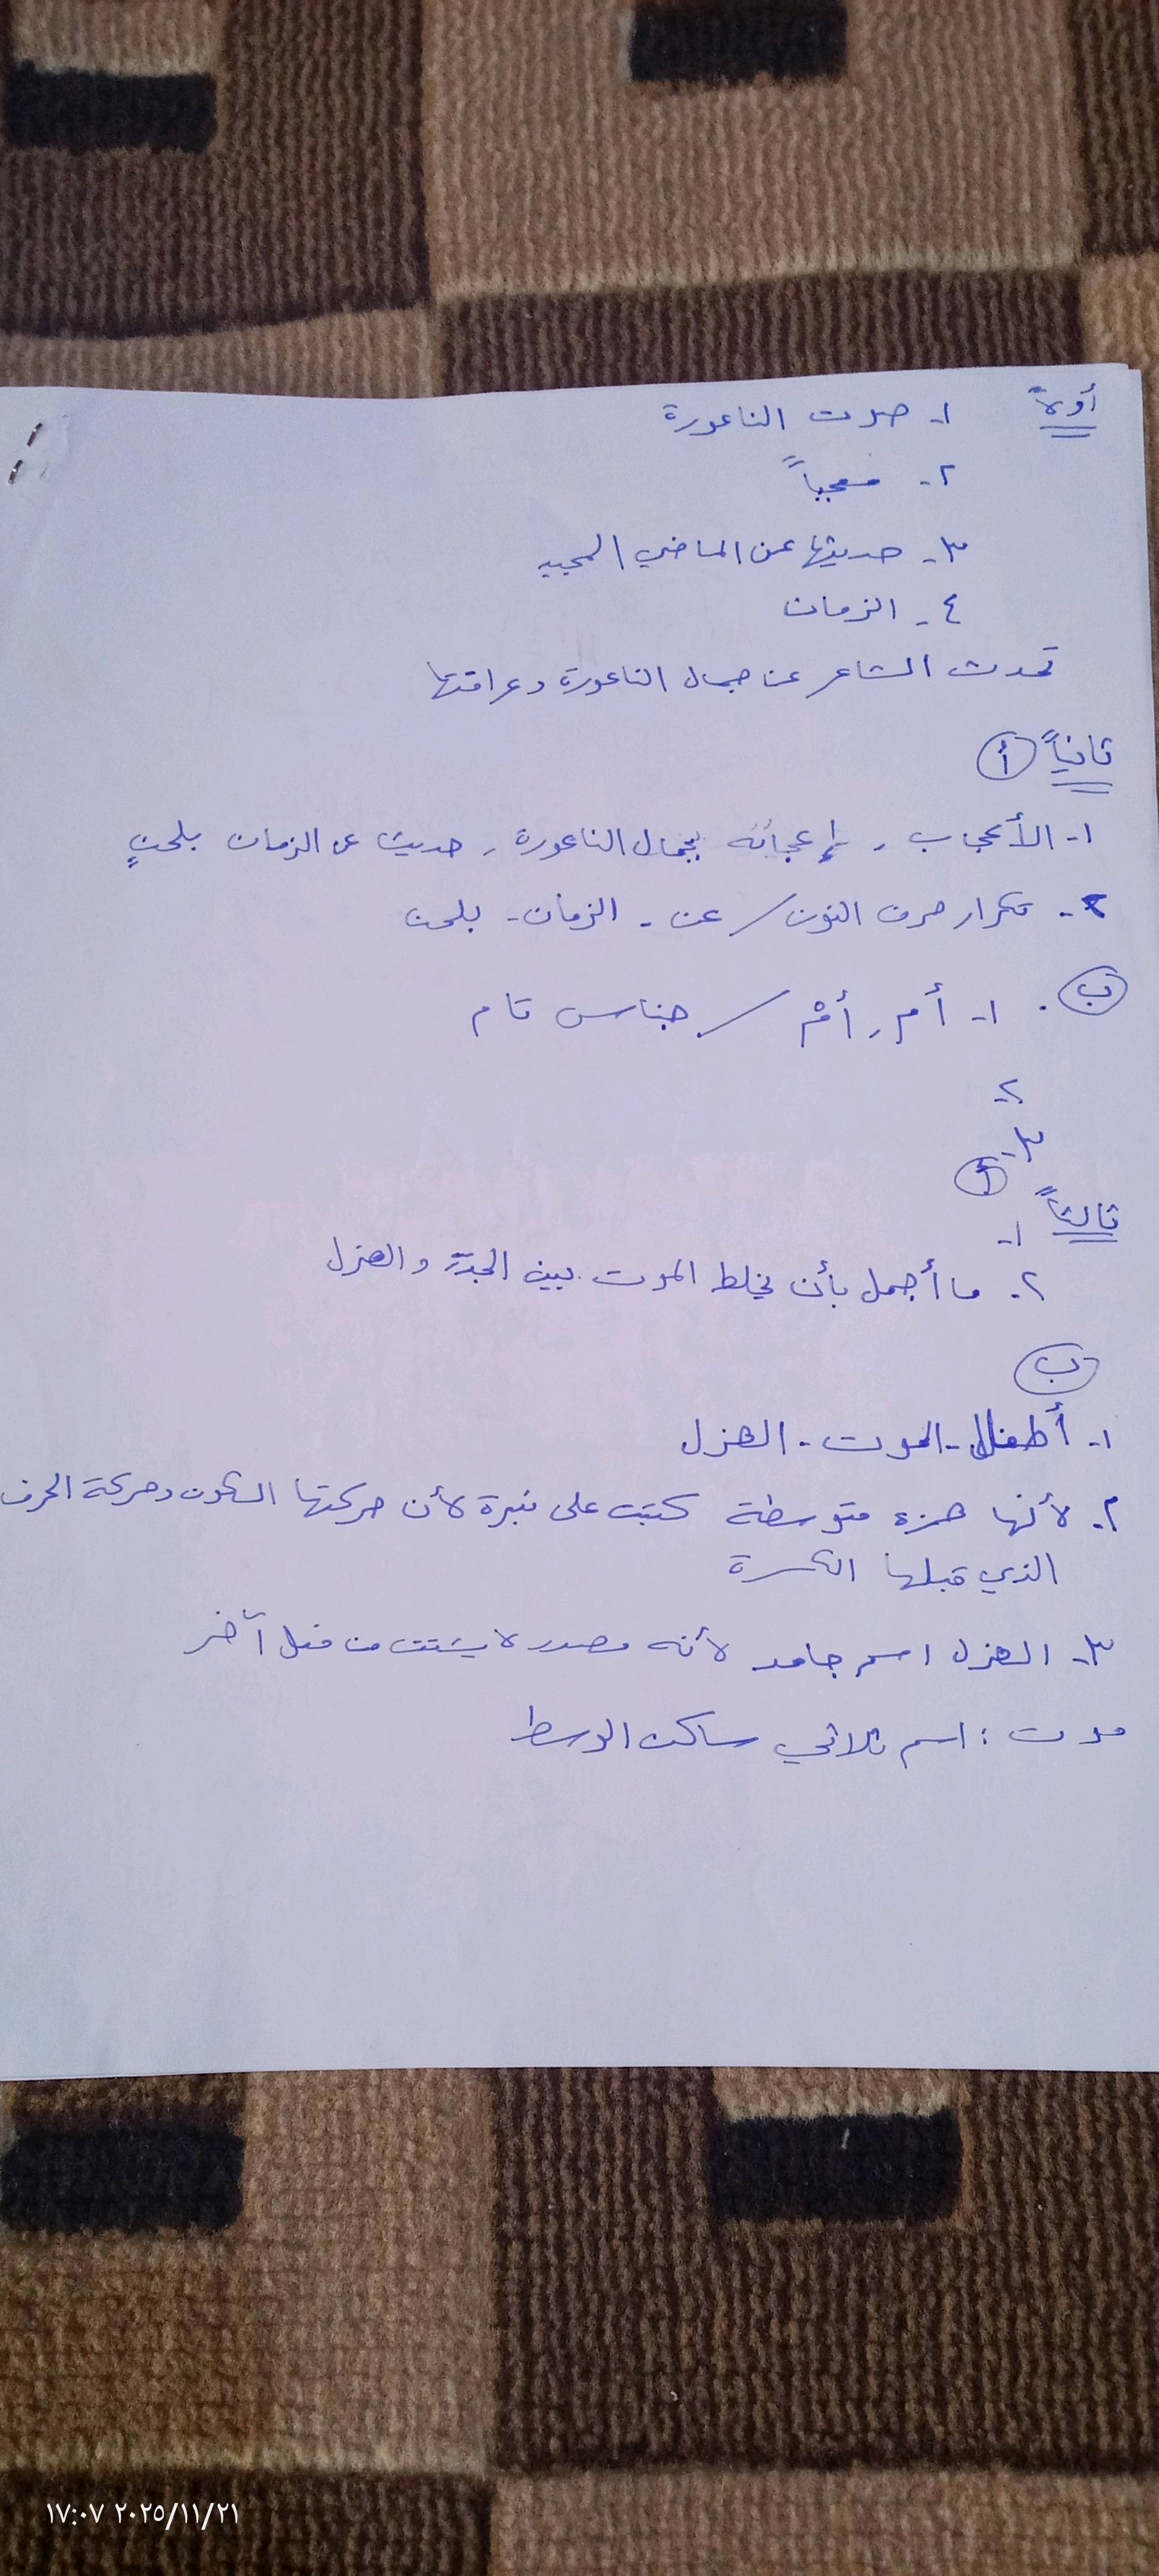 أولاً ١- صوت الناعورة
٢- معجباً
٣- حديثها عن الماضي المجيد
٤- الزمان
تحدث الشاعر عن جمال الناعورة وعراقتها
ثانياً أ
١- الأعجاب، إعجابه بجمال الناعورة، حديث عن الزمان بلحنٍ
٢- تكرار حرف النون / عن - الزمان - بلحن
ب ١- أم، أمْ / جناس تام
٢-
٣-
أ
ثالثاً
١-
٢- ما أجمل بأن يخلط الموت بين الجدّ والهزل
ب
١- أطفال - الموت - الهزل
٢- لأنها همزة متوسطة كتبت على نبرة لأن حركتها السكون وحركة الحرف
الذي قبلها الكسرة
٣- الهزل اسم جامد لأنه مصدر لا يشتق من فعل آخر
موت: اسم ثلاثي ساكن الوسط
١٧:٠٧ ٢٠٢٥/١١/٢١